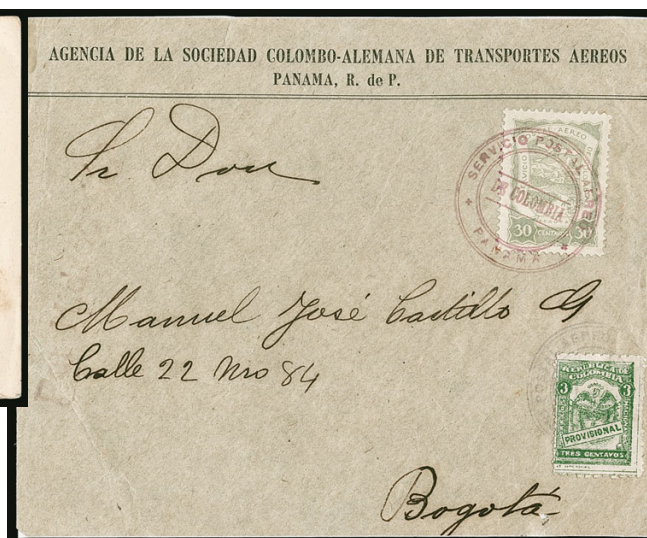 AGENCIA DE LA SOCIEDAD COLOMBO-ALEMANA DE TRANSPORTES AEREOS
PANAMA, R. de P.
Sr. Don
SERVICIO POSTAL AEREO
DE COLOMBIA
PANAMA
30 CENTAVOS 30
Manuel José Castillo G
Calle 22 Nro 84
REPUBLICA DE
COLOMBIA
3 3
PROVISIONAL
TRES CENTAVOS
Bogotá